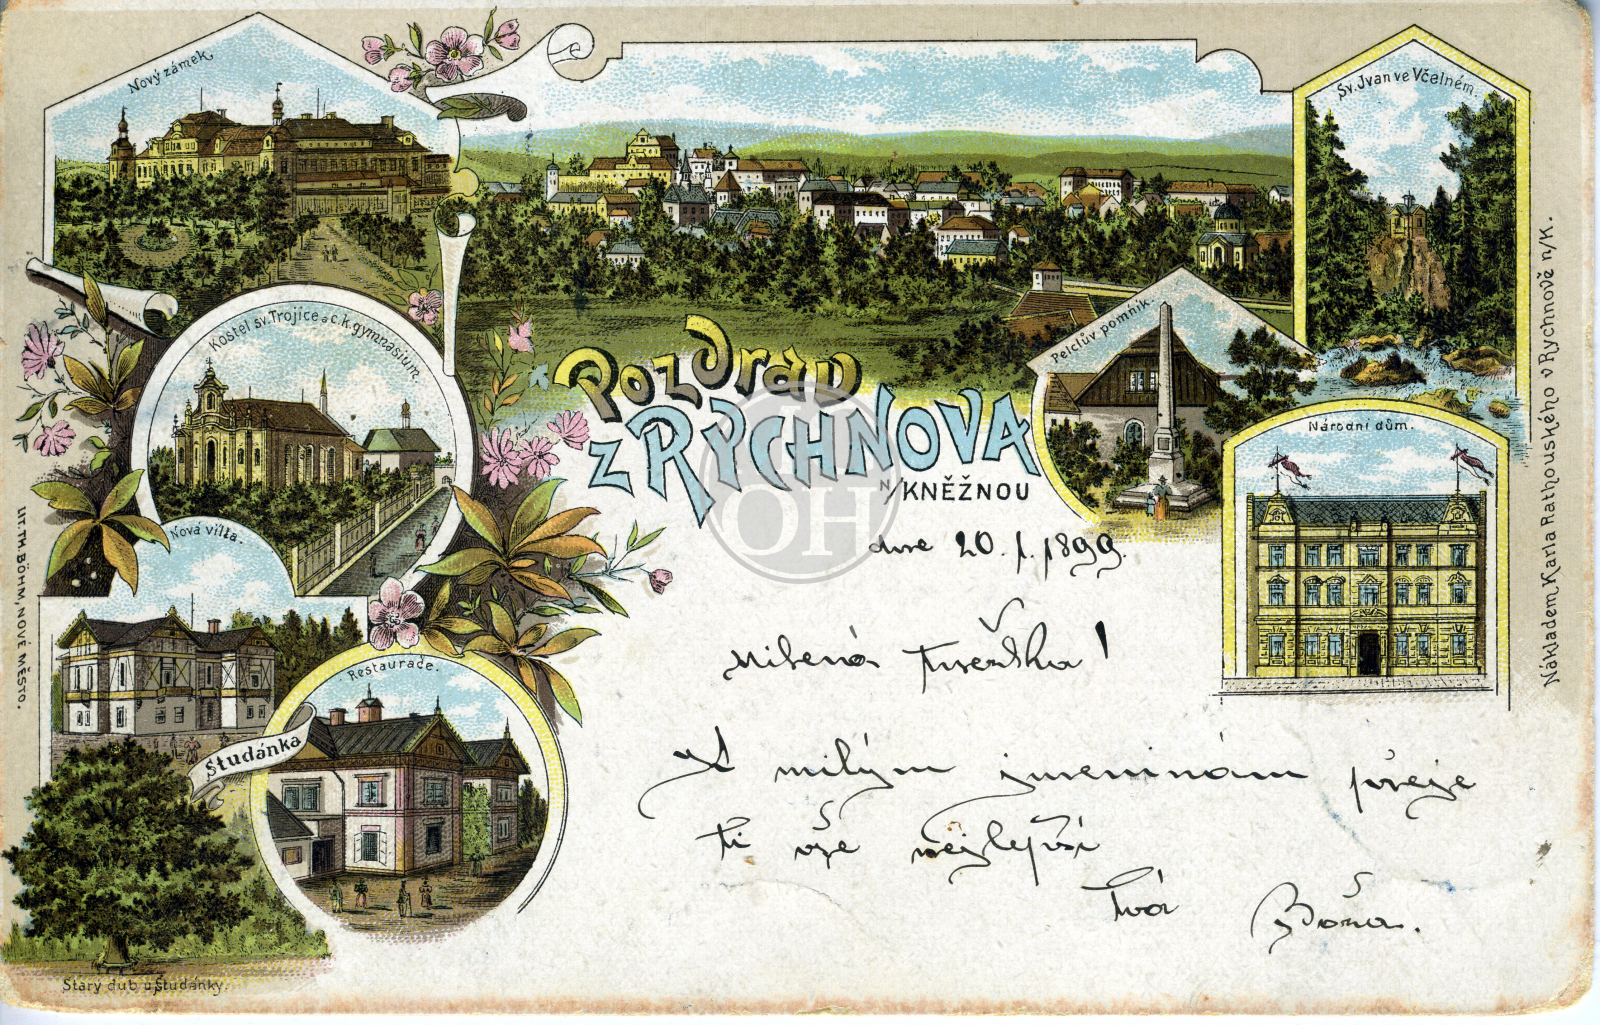 Nový zámek.
Sv. Jvan ve Včelném.
Kostel sv. Trojice a c. k. gymnasium.
Pelclův pomník.
Pozdrav
z RYCHNOVA
n/KNĚŽNOU
Národní dům.
Nová villa.
Restaurace.
Studánka
Starý dub u Studánky.
LIT. TH. BÖHM, NOVÉ MĚSTO.
Nákladem Karla Rathouského v Rychnově n/K.
OH
dne 20. /. 1899.
Milená !
K milým jmeninám přeje
ti vše nejlepší
Tvá Boža.